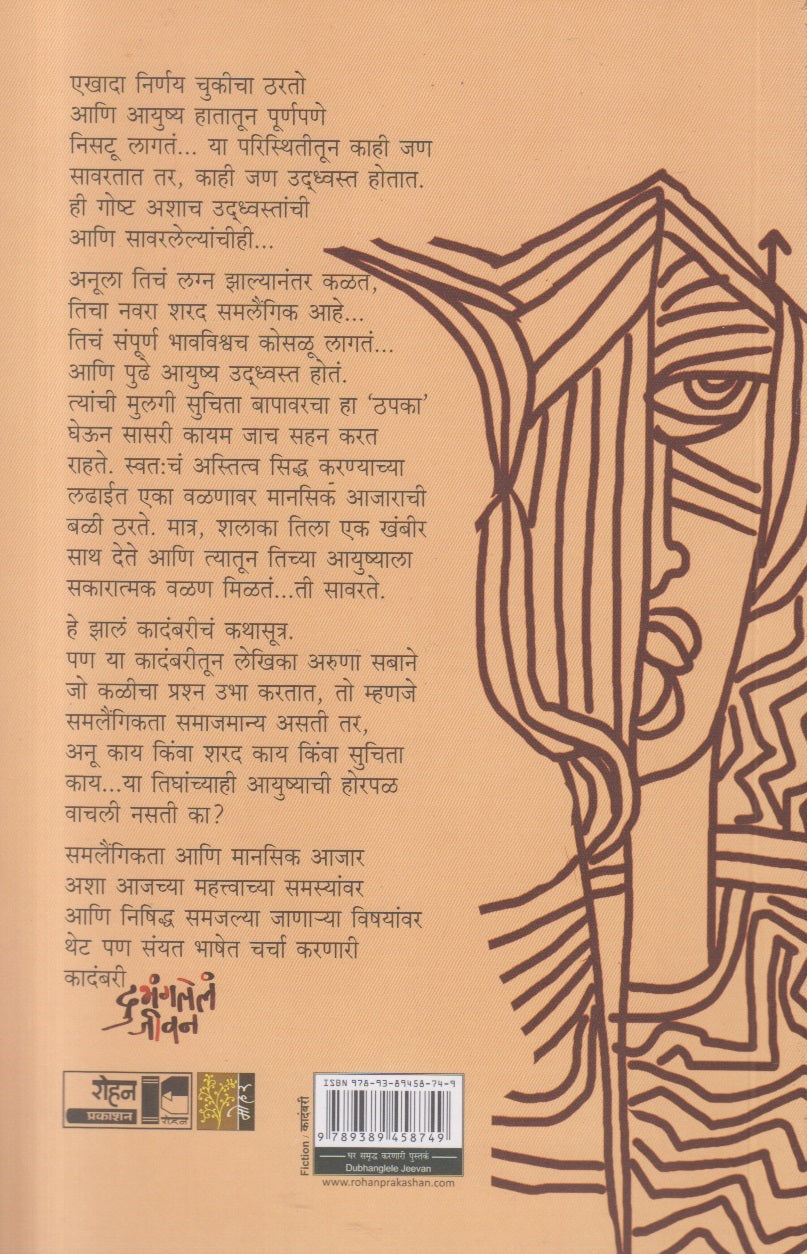 एखादा निर्णय चुकीचा ठरतो
आणि आयुष्य हातातून पूर्णपणे
निसटू लागतं... या परिस्थितीतून काही जण
सावरतात तर, काही जण उद्ध्वस्त होतात.
ही गोष्ट अशाच उद्ध्वस्तांची
आणि सावरलेल्यांचीही...
अनूला तिचं लग्न झाल्यानंतर कळतं,
तिचा नवरा शरद समलैंगिक आहे...
तिचं संपूर्ण भावविश्वच कोसळू लागतं...
आणि पुढे आयुष्य उद्ध्वस्त होतं.
त्यांची मुलगी सुचिता बापावरचा हा ‘ठपका’
घेऊन सासरी कायम जाच सहन करत
राहते. स्वत:चं अस्तित्व सिद्ध करण्याच्या
लढाईत एका वळणावर मानसिक आजाराची
बळी ठरते. मात्र, शलाका तिला एक खंबीर
साथ देते आणि त्यातून तिच्या आयुष्याला
सकारात्मक वळण मिळतं...ती सावरते.
हे झालं कादंबरीचं कथासूत्र.
पण या कादंबरीतून लेखिका अरुणा सबाने
जो कळीचा प्रश्न उभा करतात, तो म्हणजे
समलैंगिकता समाजमान्य असती तर,
अनू काय किंवा शरद काय किंवा सुचिता
काय...या तिघांच्याही आयुष्याची होरपळ
वाचली नसती का?
समलैंगिकता आणि मानसिक आजार
अशा आजच्या महत्त्वाच्या समस्यांवर
आणि निषिद्ध समजल्या जाणाऱ्या विषयांवर
थेट पण संयत भाषेत चर्चा करणारी
कादंबरी
दुभंगलेलं
जीवन
रोहन
प्रकाशन
रोहन
मोहर
Fiction / कादंबरी
ISBN 978-93-89458-74-9
9 789389 458749
घर समृद्ध करणारी पुस्तकं
Dubhanglele Jeevan
www.rohanprakashan.com